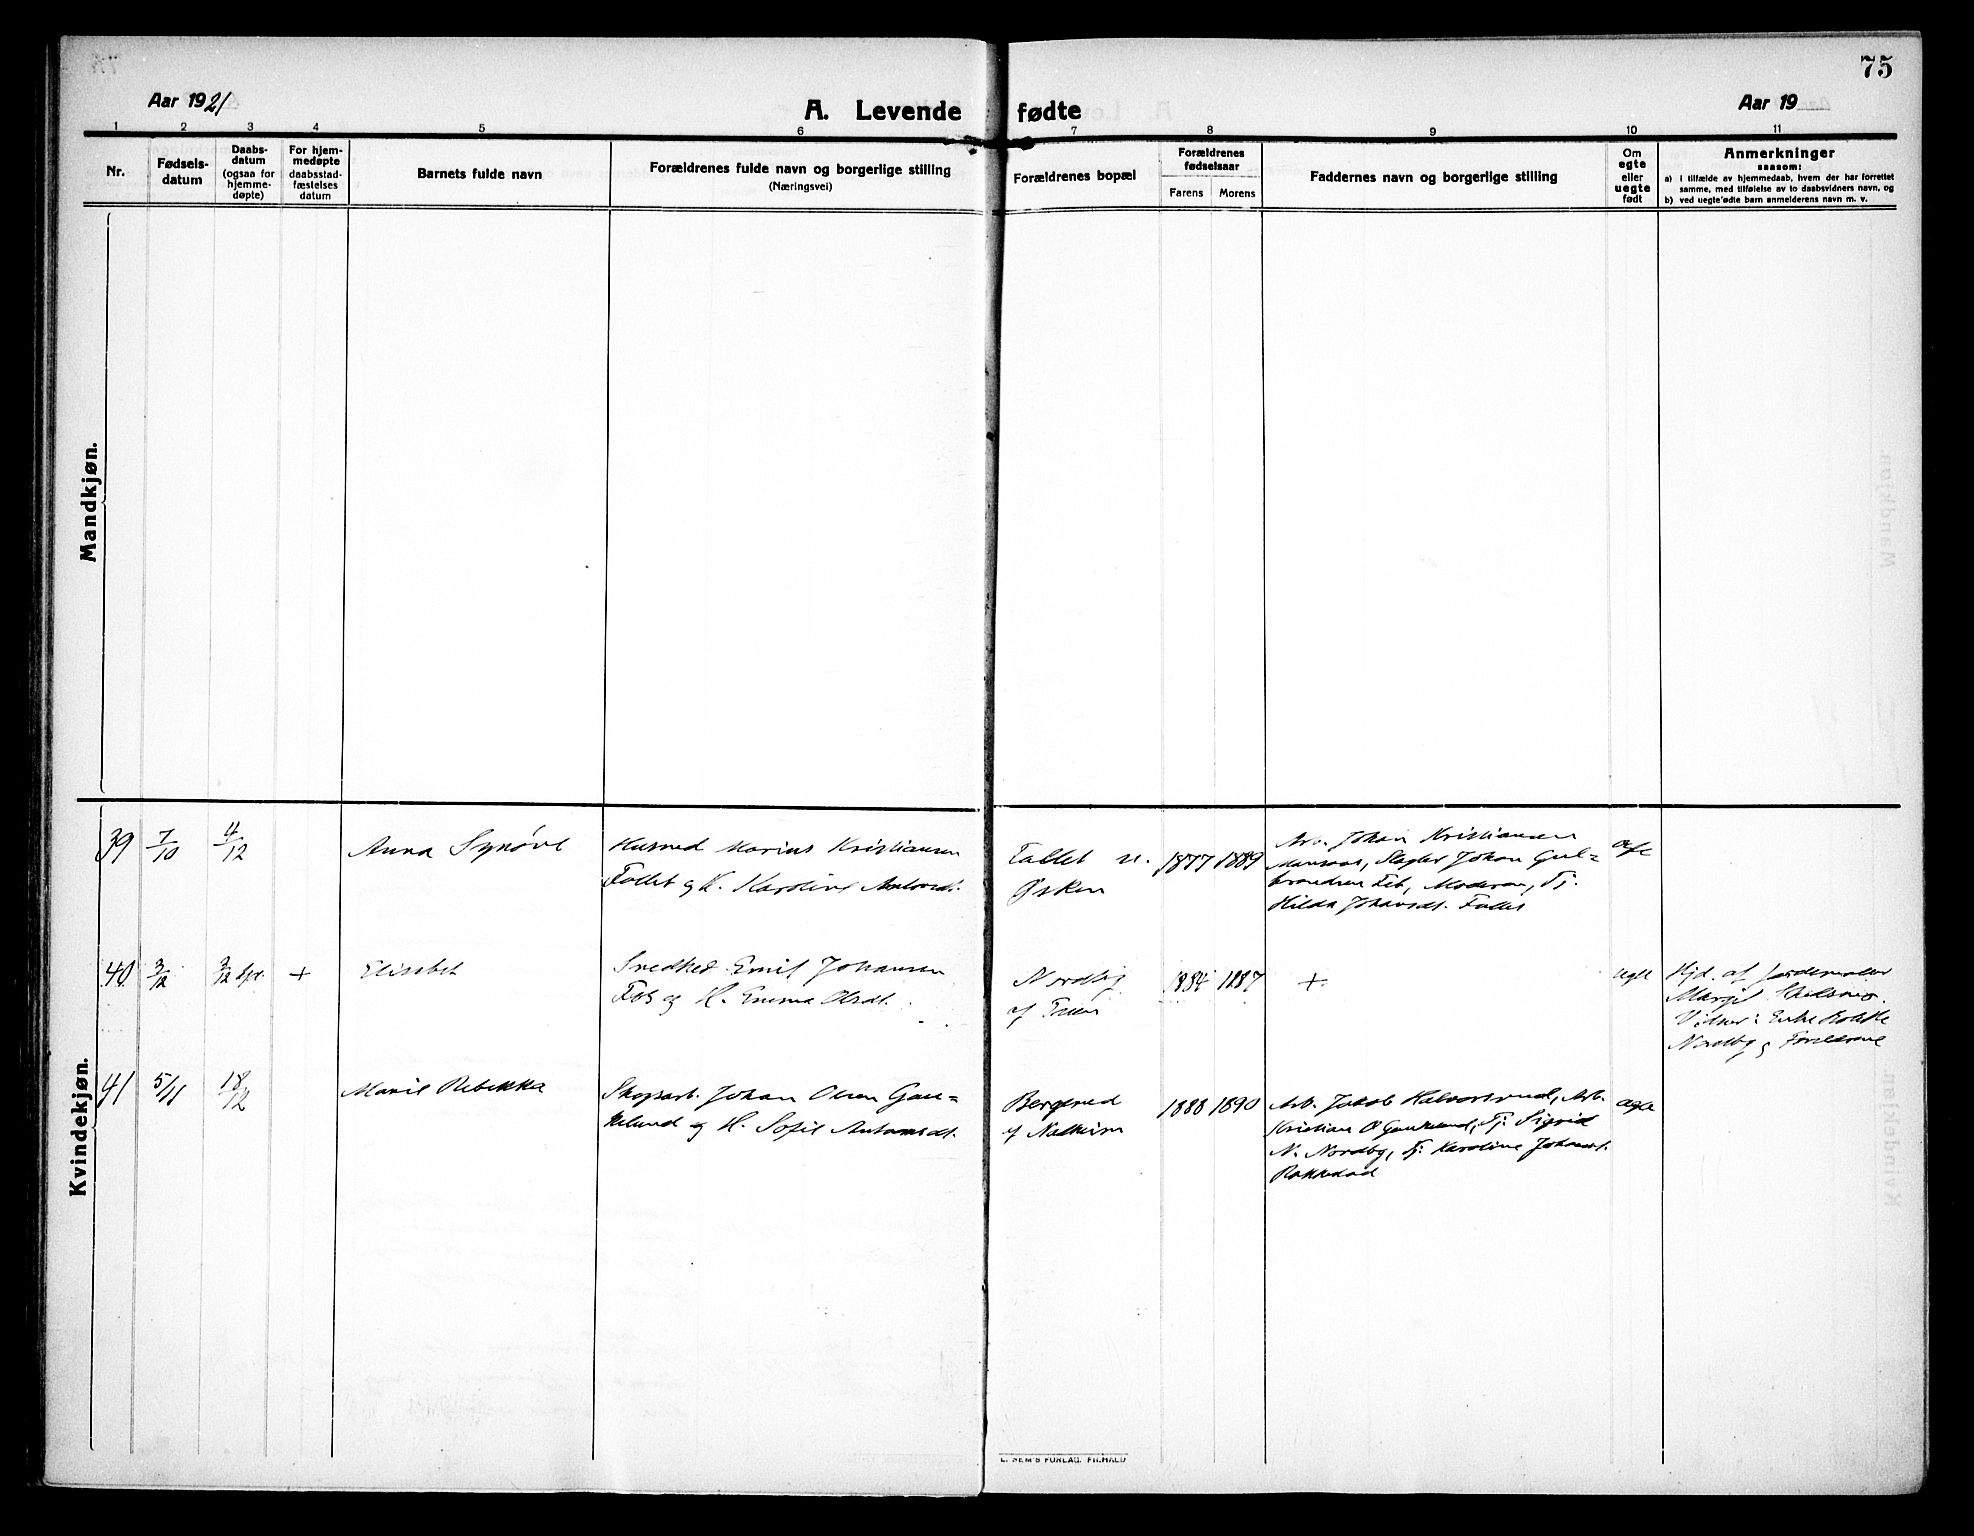 75
Aar 1921
A. Levende fødte
Aar 19
1 2 3 4 5 6 7 8 9 10 11
Nr.
Fødselsdatum
Daabs-
datum
(ogsaa for
hjemme-
døpte)
For hjem-
medøpte
daabsstad-
fæstelses
datum
Barnets fulde navn
Forældrenes fulde navn og borgerlige stilling
(Næringsvei)
Forældrenes bopæl
Forældrenes
fødselsaar
Farens Morens
Faddernes navn og borgerlige stilling
Om
egte
eller
uegte
født
Anmerkninger
saasom:
a) i tilfælde av hjemmedaab, hvem der har forrettet
samme, med tilføielse av to daabsvidners navn, og
b) ved uegte fødte barn anmelderens navn m. v.
Mandkjøn.
Kvindekjøn.
39 7/10 4/12 Anna Synøve
Husmed Marius Kristiansen
Follet og H. Karoline
Follet
1877 1889
Arb. Johan Kristiansen
Slagter Johan Gul=
brandsen Moderen, Tj.
Hilda Johansdt. Follet
40 3/12 3/12 + Elisabet
Emil Johansen
og H. Emma Olsdt.
Nordby
af
1884 1887 +
egte
Hjd. af Jordemoder
Margit
Vidner: Enke
Nordby og Forældrene
41 5/11 18/12 Marie Rebekka
Skogsarb. Johan Olsen Gau=
og H. Sofie
Bergerud
af
1888 1890
Arb. Jakob Halvorsrud, Arb.
Kristian O Tj. Sigrid
N. Nordby, Tj. Karoline Johansdt.
egte
L. NEM'S FORLAG, FR.HALD